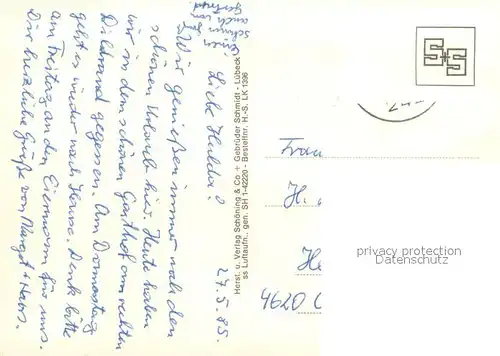 27.5.85.
Liebe Hulda!
Wir genießen immer noch den
schönen Urlaub hier. Heute haben
wir in dem schönen Gasthof am rechten
Bildrand gegessen. Am Donnerstag
geht es wieder nach Hause. Denk bitte
am Freitag an den Eiermann für uns.
Dir herzliche Grüße von Margot + Hans.
auch von
Horst. u. Verlag Schöning & Co + Gebrüder Schmidt - Lübeck
ss Luftaufn., gen. SH 1-42220 - Bestellnr. H.-S. LK 1396
Frau
H.
He
4620 C
privacy protection
Datenschutz